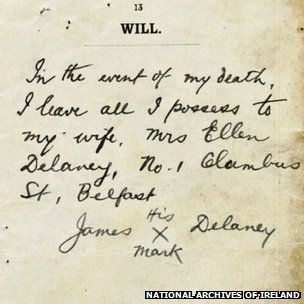 13
WILL.
In the event of my death,
I leave all I possess to
my wife, Mrs Ellen
Delaney, No. 1 Clambus
St, Belfast
His
James X Delaney
mark
NATIONAL ARCHIVES OF IRELAND